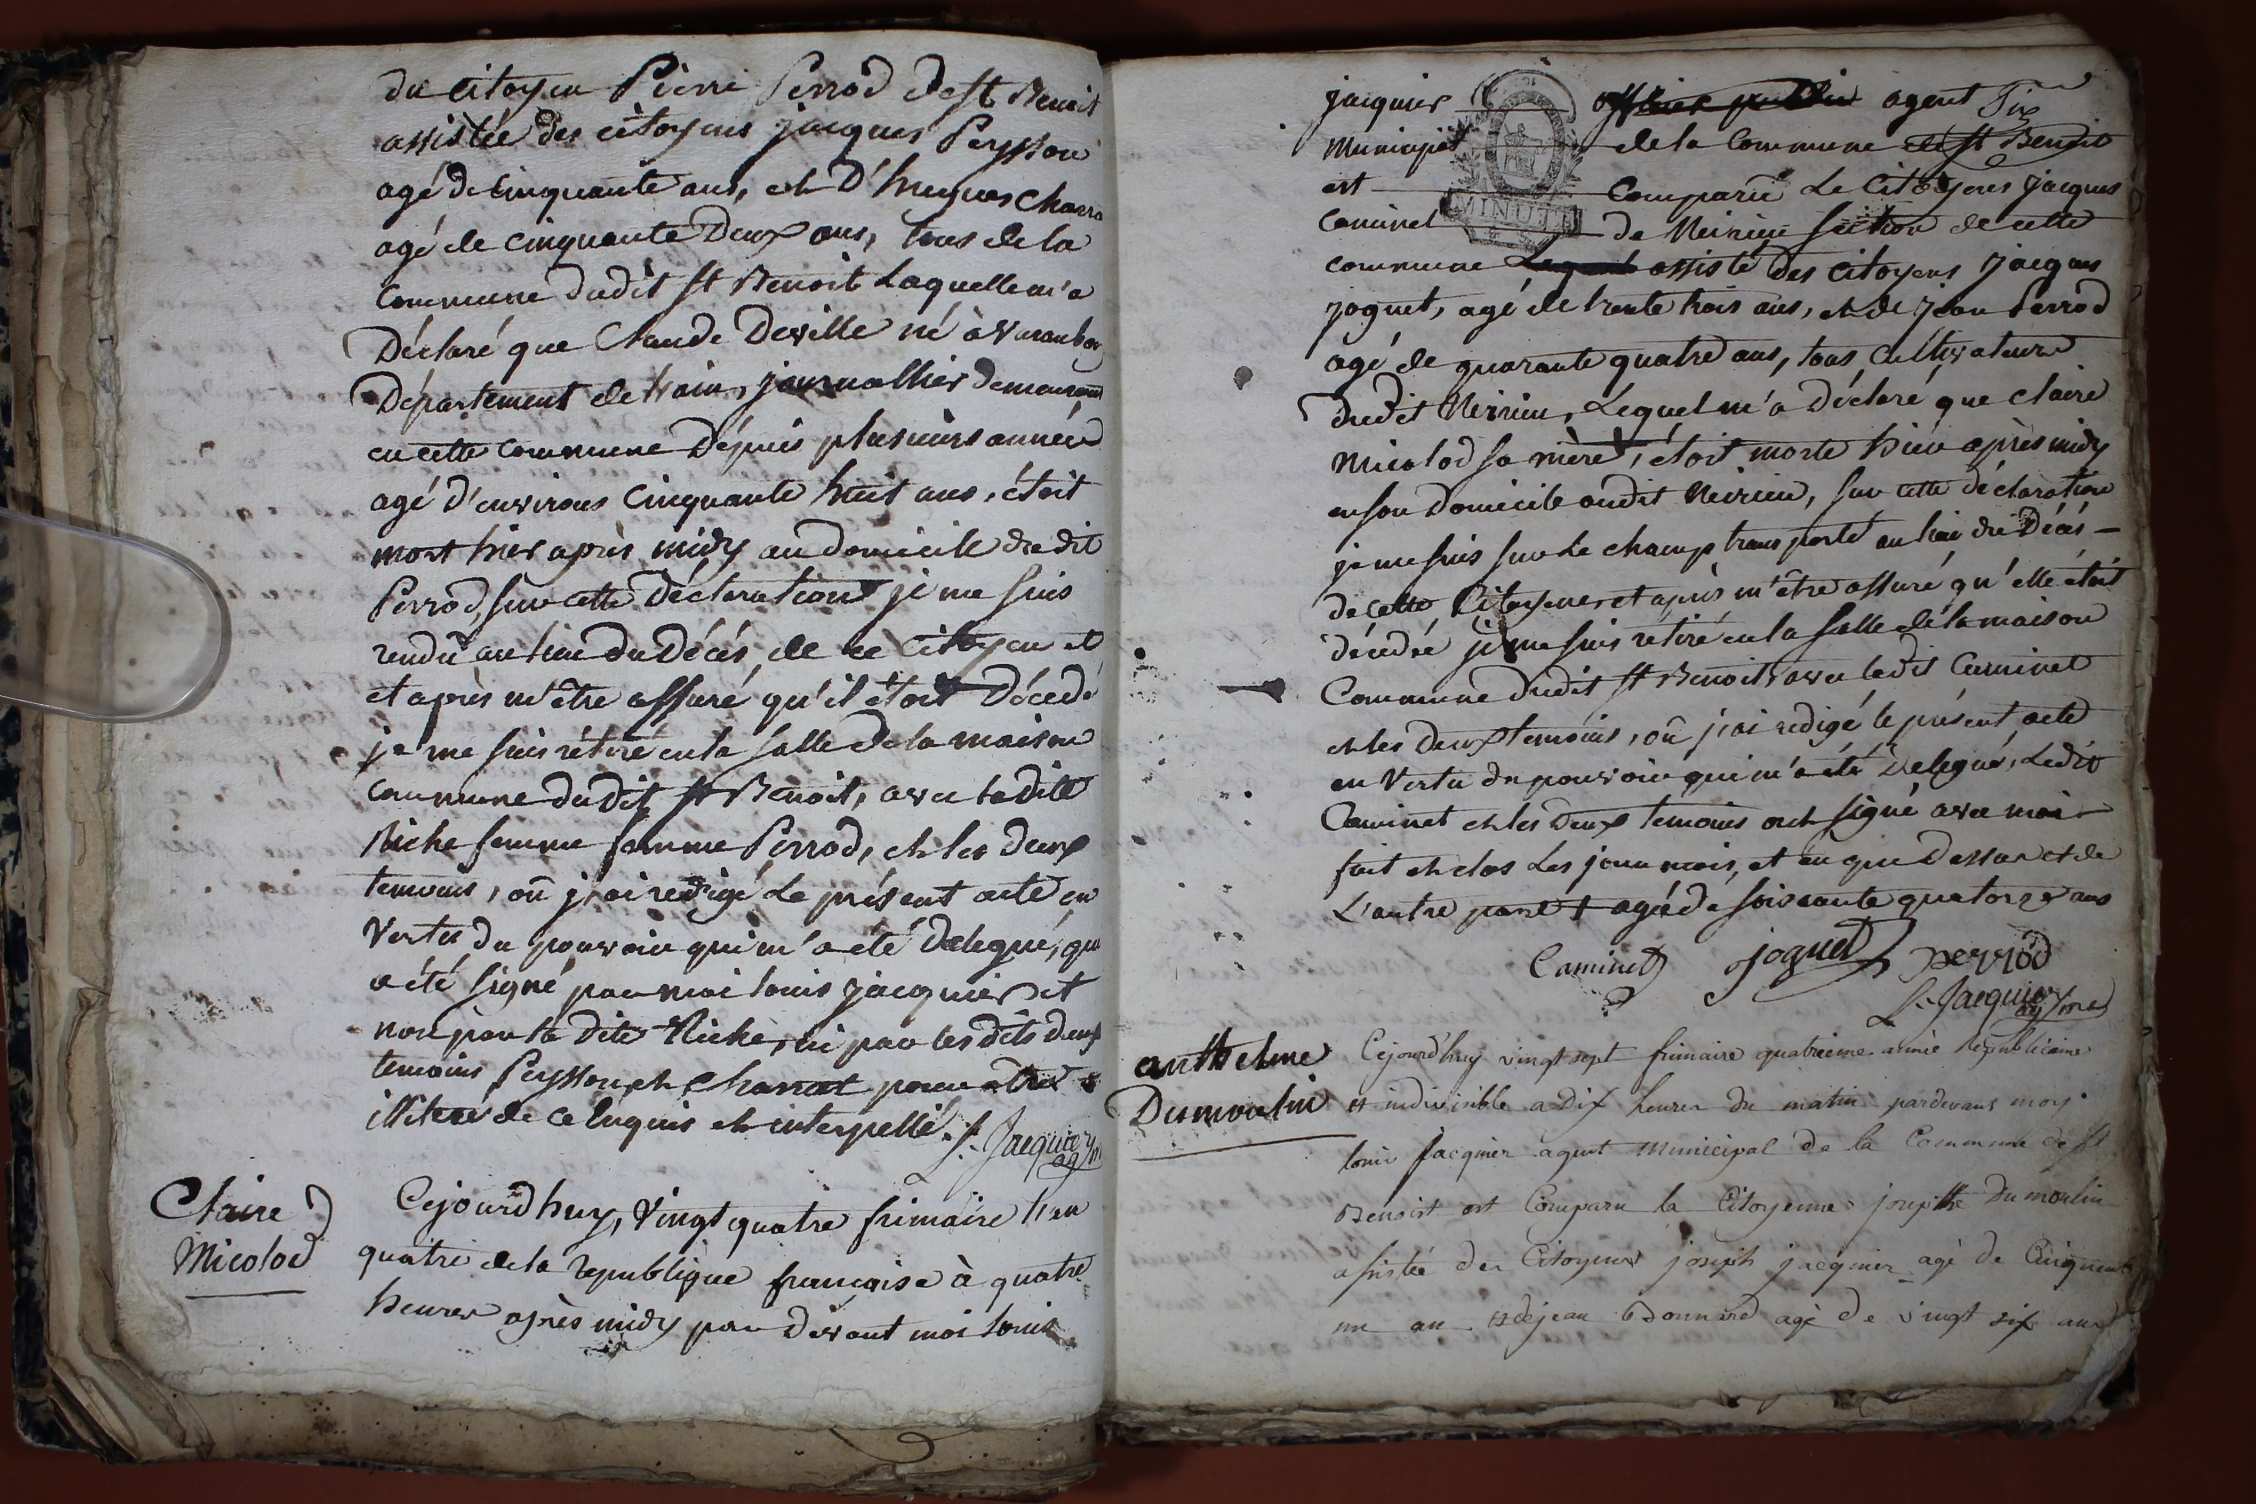 du citoyen Pierre Perrod de st Benoit
assistée des citoyens jacques Peysson
agé de cinquante ans, et D'hugues Charra
agé de cinquante Deux ans, tous de la
commune dudit st Benoit Laquelle m'a
Déclaré que Claude Deville né à
Département de l'ain, journallier demeurant
en cette commune Dépuis plusieurs année
agé d'environs cinquante huit ans, étoit
mort hier après midy au domicile dudit
Perrod, sur cette Déclaration je me suis
rendû au lieu du Décés de ce citoyen et
et après m'être assuré qu'il étoit Décedé
je me suis rétiré en la salle de la maison
commune dudit st Benoit, avec la dite
Riche femme femme Perrod, et les deux
temoins, où j'ai redigé Le présent acte en
Vertu du pouvoir qui m'a été Delegué, qui
a été signé par moi louis jacquier et
non par la dite Riche, ni par les dits deux
temoins Peysson et Charrat pour être
illiteré de ce enquis et interpellé. L. Jacquier
ag m
Claire
Micolod
Cejourd'huy, Vingt quatre frimaire l'an
quatre de la republique française à quatre
heures après midy par devant moi louis
jacquier officier public agent
Municipal de la Commune de st Benoit
est Comparu Le Citoyens jacques
Caminet de Neirieu section de cette
MINUTE
commune Lequel assisté des citoyens jacques
joguet, agé de trente trois ans, et de jean Perrod
agé de quarante quatre ans, tous cultivateurs
dudit Neirieu, Lequel m'a déclaré que claire
Micolod sa mère, étoit morte hier après midy
en son Domicile audit Neirieu, sur cette déclaration
je me suis sur Le champ transporté au lieu du Décés
de cette Citoyenne et après m'être assuré qu'elle étoit
décedée je me suis retiré en la salle de la maison
Commune dudit st Benoit avec ledit Caminet
et les deux temoins, où j'ai redigé le présent acte
en Vertu du pouvoir qui m'a été Delegué, Ledit
Caminet et les Deux temoins ont signé avec moi
fait et clos Les jour mois, et an que Dessus et de
L'autre part agée de soixante quatorze ans
Caminet joguet perrod
L. Jacquier
ag m
anthelme
Dumoulin
Cejourd'huy vingt sept frimaire quatrieme année Republicaine
et indivisible a Dix heures du matin pardevant moy
louis Jacquier agent Municipal de la Commune de st
Benoist est Comparu la Citoyenne josepthe Dumoulin
assistée des Citoyens joseph jacquier agé de Cinquante
un an et de jean Bonnard agé de vingt six ans